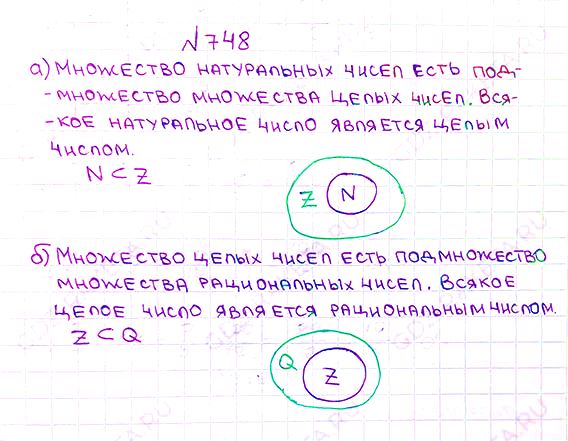 №748
а) Множество натуральных чисел есть под-
-множество множества целых чисел. Вся-
-кое натуральное число является целым
числом.
N ⊂ Z
Z N
б) Множество целых чисел есть подмножество
множества рациональных чисел. Всякое
целое число является рациональным числом.
Z ⊂ Q
Q Z